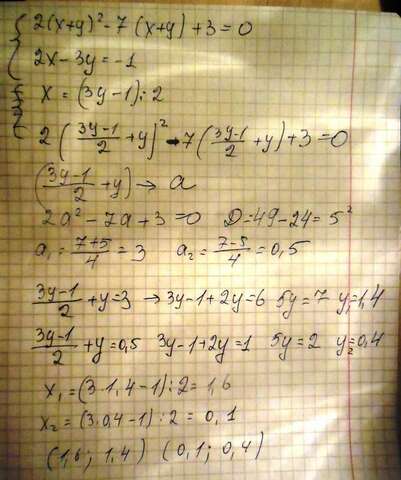 2(x+y)² - 7(x+y) + 3 = 0
2x - 3y = -1
x = (3y-1):2
2((3y-1)/2 + y)² - 7((3y-1)/2 + y) + 3 = 0
((3y-1)/2 + y) → a
2a² - 7a + 3 = 0 D = 49 - 24 = 5²
a₁ = (7+5)/4 = 3 a₂ = (7-5)/4 = 0,5
(3y-1)/2 + y = 3 → 3y-1+2y = 6 5y = 7 y₁ = 1,4
(3y-1)/2 + y = 0,5 3y-1+2y = 1 5y = 2 y₂ = 0,4
x₁ = (3·1,4-1):2 = 1,6
x₂ = (3·0,4-1):2 = 0,1
(1,6; 1,4) (0,1; 0,4)